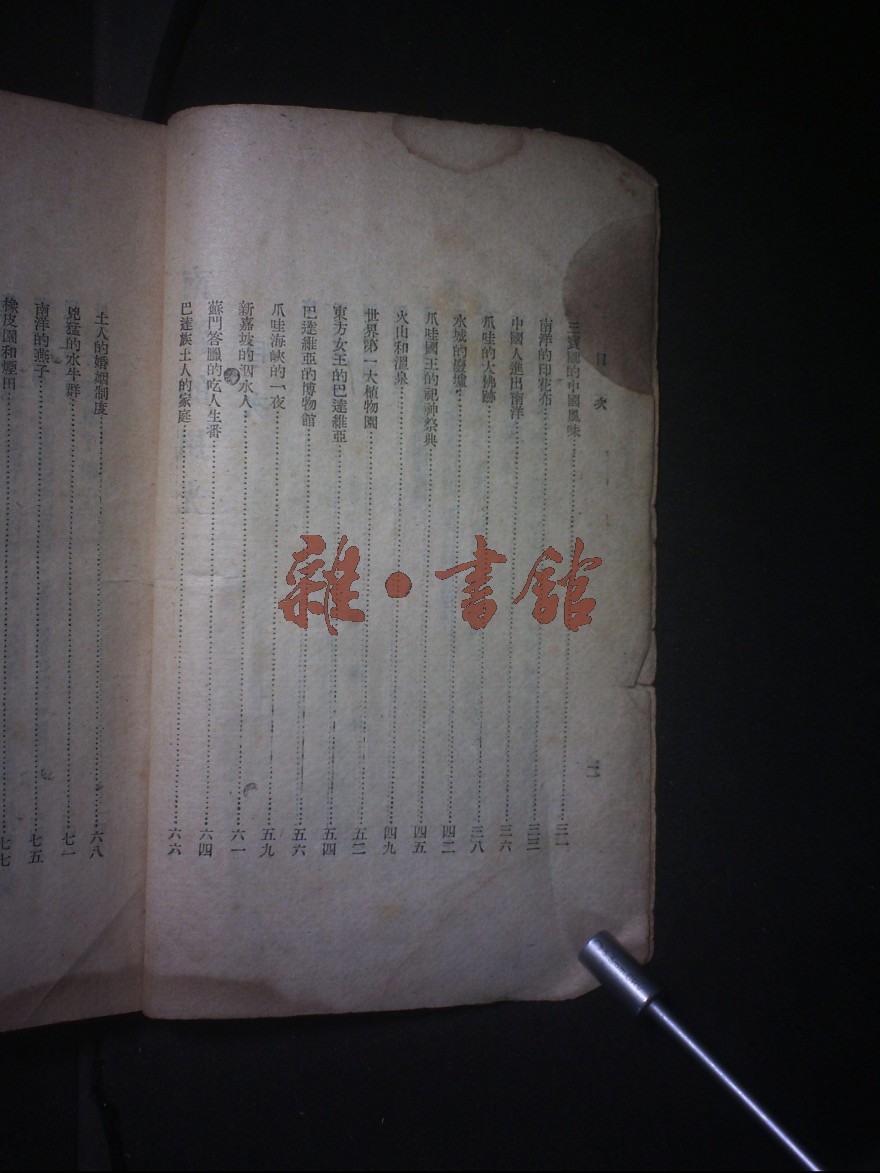 目次
二
三寶壟的中國風味……三一
南洋的印花布……三三
中國人進出南洋……三六
爪哇的大佛跡……三八
水城的廢墟……四二
爪哇國王的祀神祭典……四五
火山和溫泉……四九
世界第一大植物園……五二
東方女王的巴達維亞……五四
巴達維亞的博物館……五六
爪哇海峽的一夜……五九
新嘉坡的泅水人……六一
蘇門答臘的吃人生番……六四
巴達族土人的家庭……六六
土人的婚姻制度……六八
兇猛的水牛群……七一
南洋的燕子……七五
橡皮園和煙田……七七
雜·書館